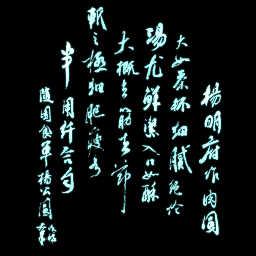 楊明府作肉圓
大如茶杯細膩絕倫
湯尤鮮潔入口如酥
大概去筋去節
斬之極細肥瘦各
半用纤合匀
隨園食單楊公圓